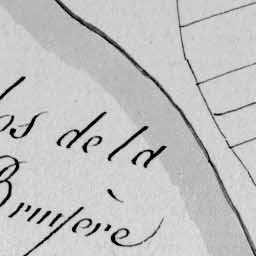 los de la
Bruyère